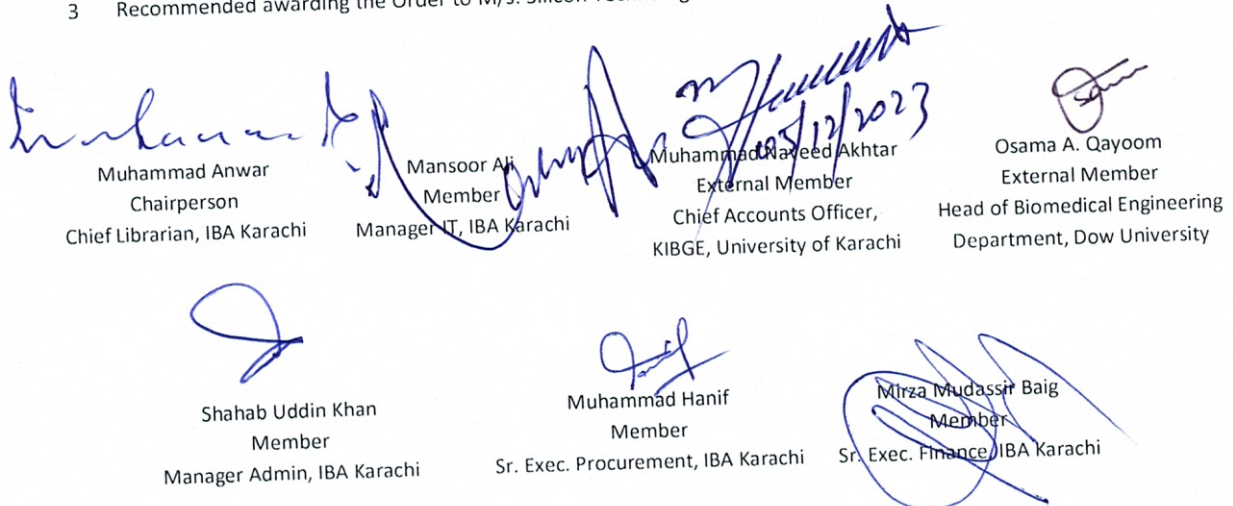 3 Recommended awarding the Order to M/s. Silicon
05/12/2023
Muhammad Anwar
Chairperson
Chief Librarian, IBA Karachi
Mansoor Ali
Member
Manager IT, IBA Karachi
Muhammad Naveed Akhtar
External Member
Chief Accounts Officer,
KIBGE, University of Karachi
Osama A. Qayoom
External Member
Head of Biomedical Engineering
Department, Dow University
Shahab Uddin Khan
Member
Manager Admin, IBA Karachi
Muhammad Hanif
Member
Sr. Exec. Procurement, IBA Karachi
Mirza Mudassir Baig
Member
Sr. Exec. Finance, IBA Karachi